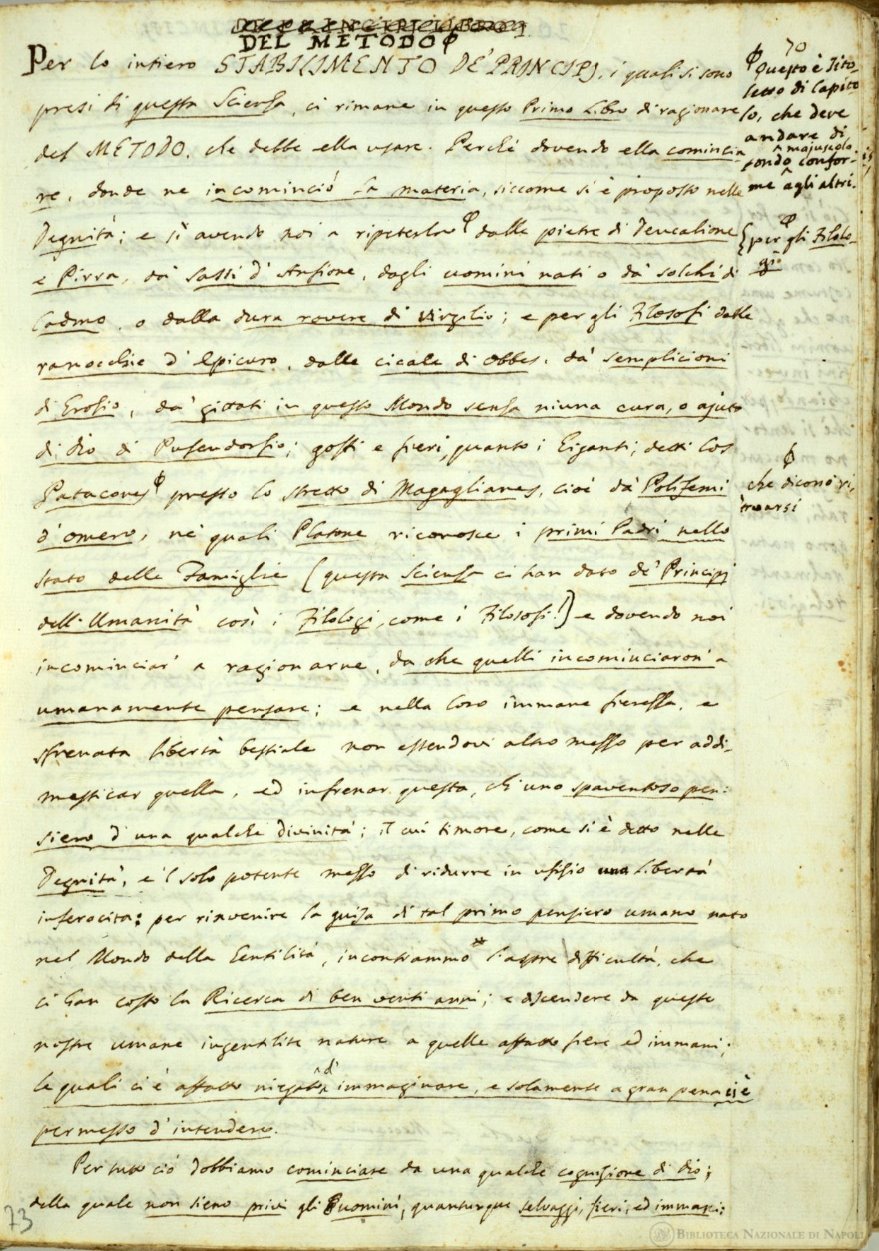 DEL METODO φ
Per lo intiero STABILIMENTO DE' PRINCIPJ, i quali si sono
presi di questa Scienza, ci rimane in questo Primo Libro di ragionare
del METODO, che debbe ella usare. Perchè dovendo ella comincia-
re, donde ne incominciò la materia, siccome si è proposto nelle
Degnità; e sì avendo noi a ripeterla φ dalle pietre di Deucalione
e Pirra, da' sassi d' Anfione, dagli uomini nati o da' solchi di
Cadmo, o dalla dura rovere di Virgilio; e per gli Filosofi dalle
ranocchie d' Epicuro, dalle cicale di Obbes, da' semplicioni
di Grozio, da' gittati in questo Mondo senza niuna cura, o ajuto
di dio di Pufendorfio; goffi e fieri, quanto i Giganti, detti los
Patacones φ presso lo stretto di Magaglianes, cioè da' Polifemi
d' omero, ne' quali Platone riconosce i primi Padri nello
stato delle Famiglie (questa Scienza ci han dato de' Principj
dell' Umanità così i Filologi, come i Filosofi!) e dovendo noi
incominciar' a ragionarne, da che quelli incominciaron' a
umanamente pensare; e nella loro immane fierezza, e
sfrenata libertà bestiale non essendovi altro mezzo per addi-
mesticar quella, ed infrenar questa, ch' uno spaventoso pen-
siero d' una qualche divinità; il cui timore, come si è detto nelle
Degnità, è 'l solo potente mezzo di ridurre in ufizio una Libertà
inferocita: per rinvenire la guisa di tal primo pensiero umano nato
nel Mondo della Gentilità, incontrammo l' aspre difficultà, che
ci han costo la Ricerca di ben venti anni; e discendere da queste
nostre umane ingentilite nature a quelle affatto fiere ed immani;
le quali ci è affatto niegato d' immaginare, e solamente a gran pena ci è
permesso d' intendere.
Per tutto ciò dobbiamo cominciare da una qualche cognizione di dio;
della quale non sieno privi gli Uomini, quantunque selvaggi, fieri, ed immani;
70
φ Questo è Tito-
lo, che deve
andare di
majuscolo
tondo confor-
me agli altri.
φ
{ per gli Filolo-
gi
φ
che dicono ri-
trovarsi
73
BIBLIOTECA NAZIONALE DI NAPOLI